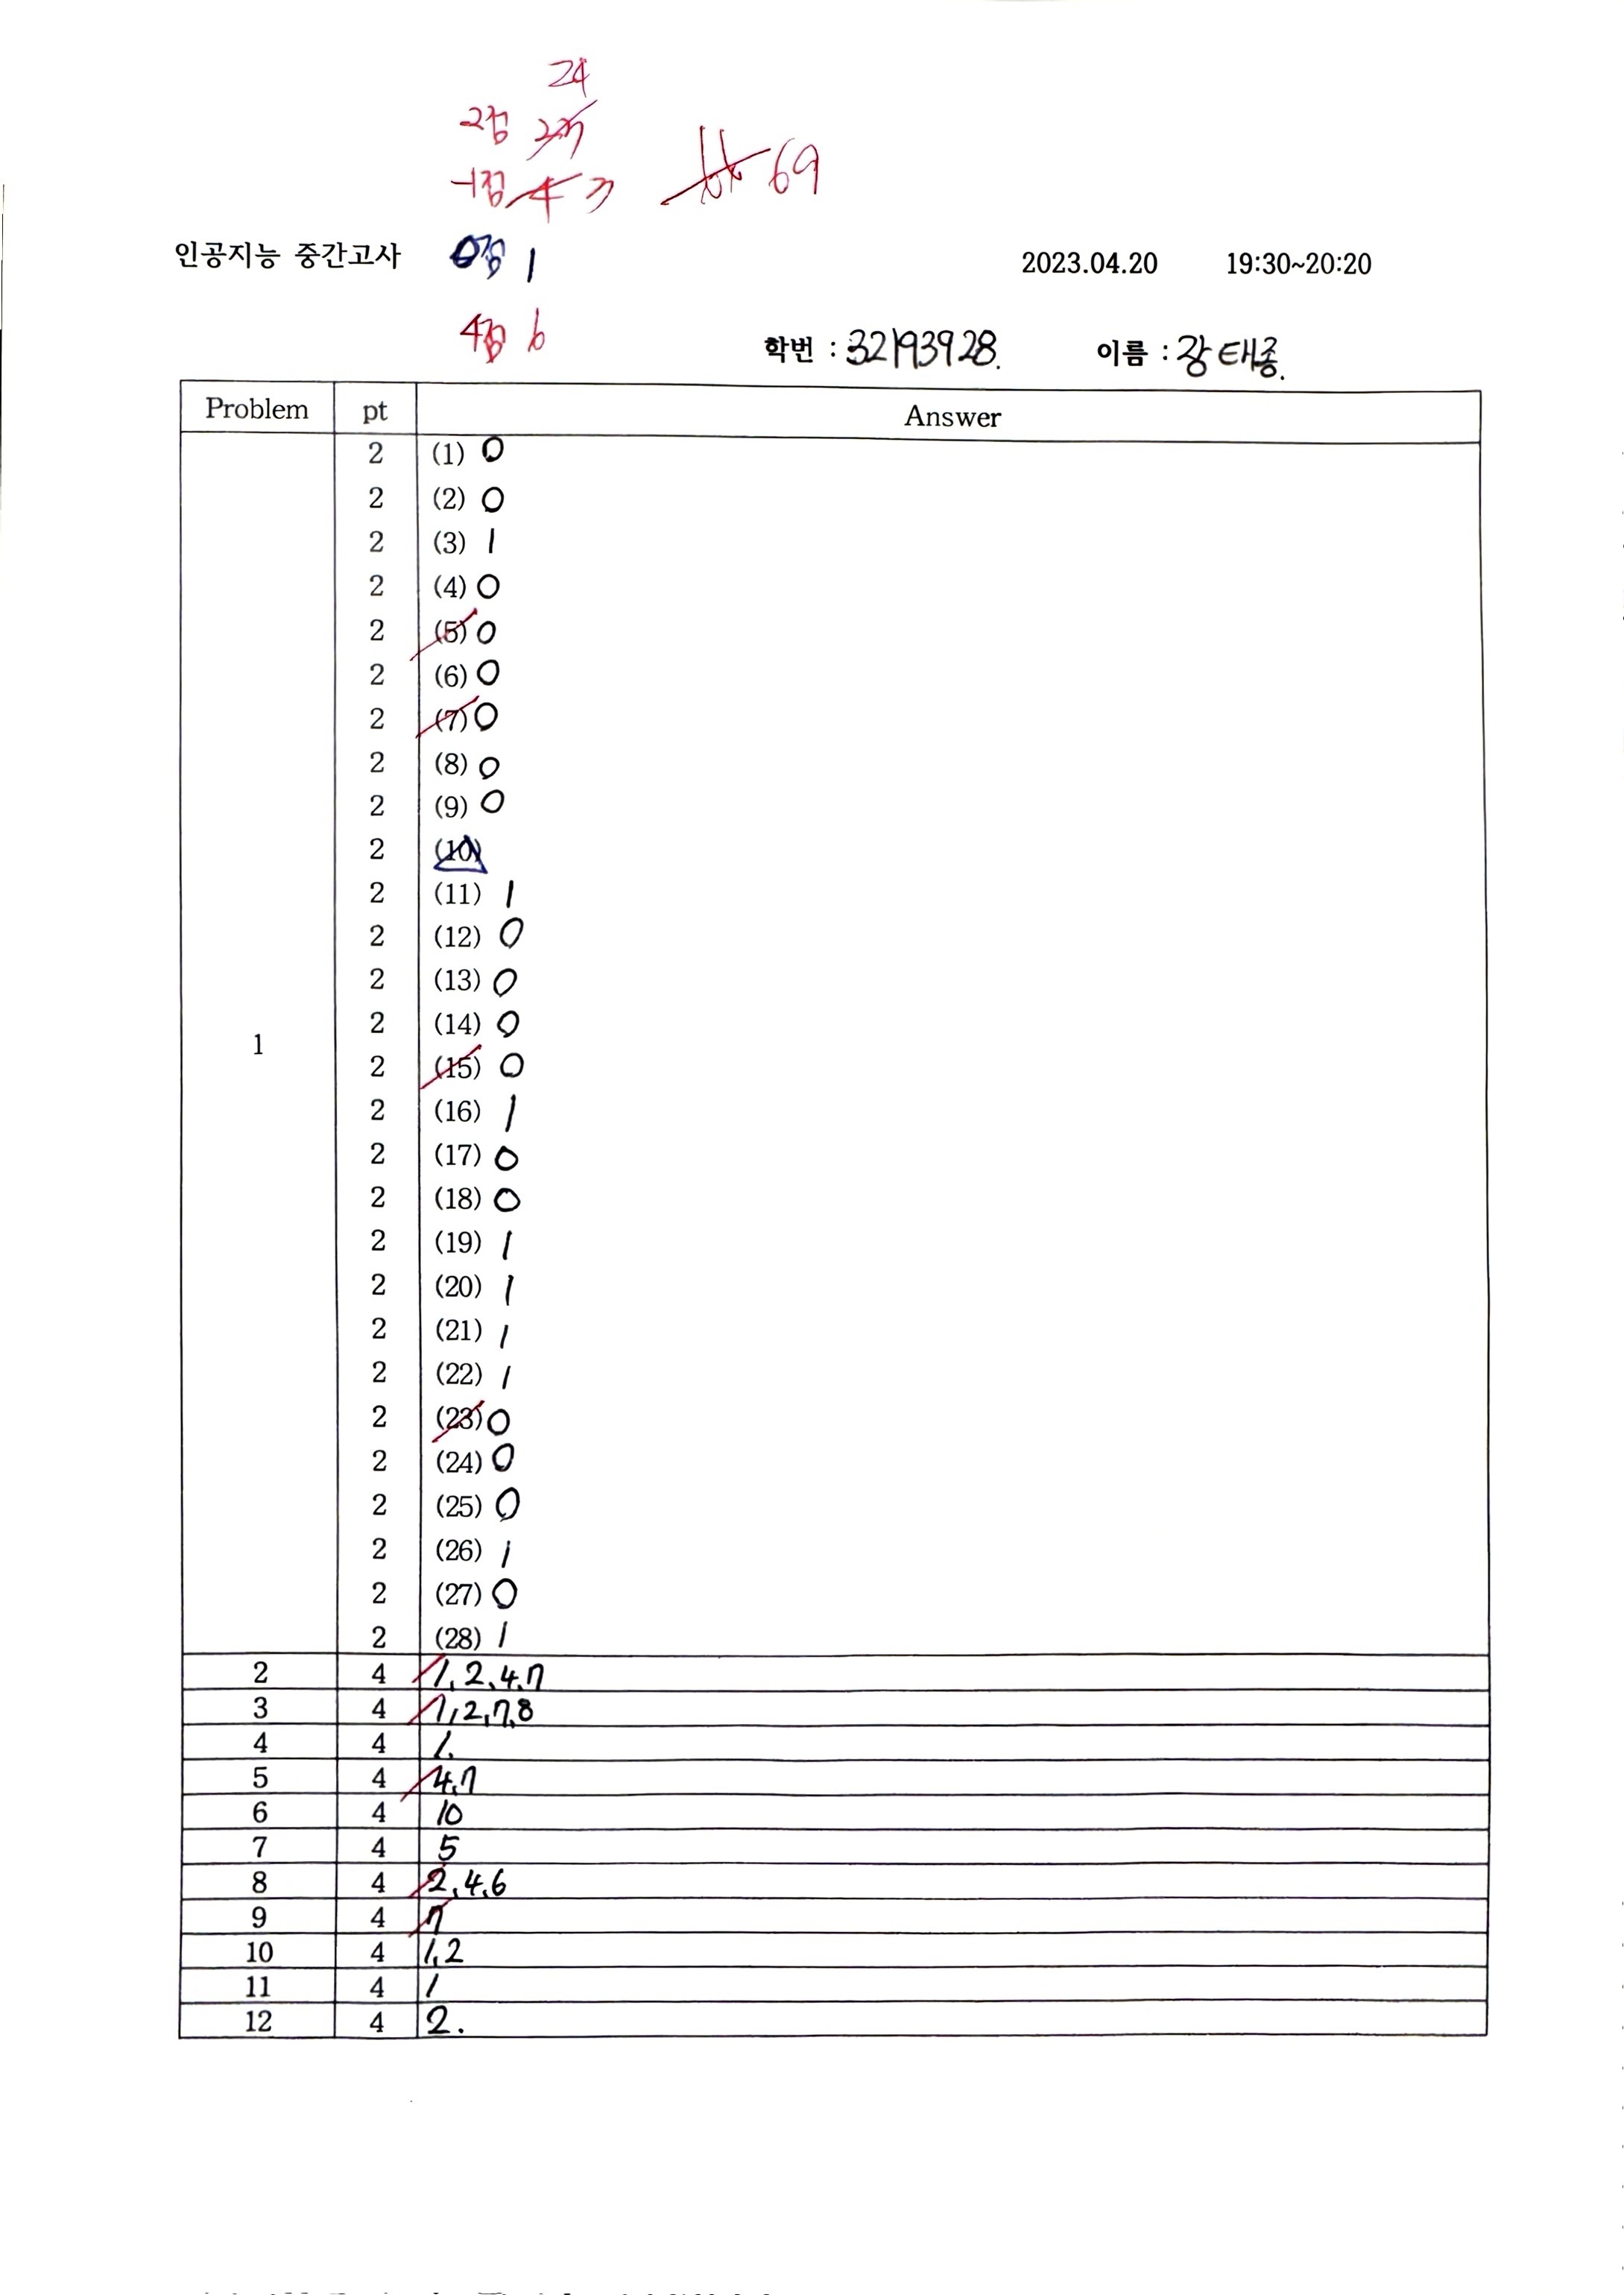 24
2점 23
-1점 4 3 69
인공지능 중간고사 0점 1 2023.04.20 19:30~20:20
4점 6 학번 : 32193928. 이름 : 강태종.
Problem pt Answer
1
2 (1) 0
2 (2) 0
2 (3) 1
2 (4) 0
2 (5) 0
2 (6) 0
2 (7) 0
2 (8) 0
2 (9) 0
2 (10)
2 (11) 1
2 (12) 0
2 (13) 0
2 (14) 0
2 (15) 0
2 (16) 1
2 (17) 0
2 (18) 0
2 (19) 1
2 (20) 1
2 (21) 1
2 (22) 1
2 (23) 0
2 (24) 0
2 (25) 0
2 (26) 1
2 (27) 0
2 (28) 1
2 4 1, 2, 4, 7
3 4 1, 2, 7, 8
4 4 1.
5 4 4, 7
6 4 10
7 4 5
8 4 2, 4, 6
9 4 7
10 4 1, 2
11 4 1
12 4 2.